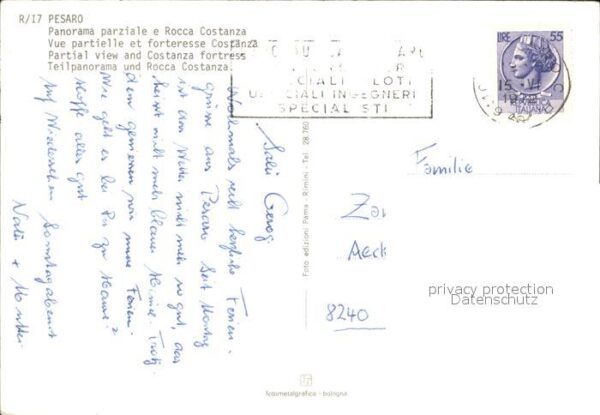 R/17 PESARO
Panorama parziale e Rocca Costanza
Vue partielle et forteresse Costanza
Partial view and Costanza fortress
Teilpanorama und Rocca Costanza.
CIALI LOTI
CIALI INGEGNERI
SPECIALISTI
LIRE 55
ITALIANE
15 VI
Salü Georg
Nochmals recht herzliche Ferien-
grüsse aus Pesaro. Seit Montag
ist das Wetter nicht mehr so gut, das
heisst nicht mehr blauer Himmel. Trotz-
dem geniessen wir unsere Ferien.
Wie geht es bei Dir zu Hause?
Hoffe alles gut.
Auf Wiedersehen Sonntagabend
+ Mutter
Foto edizioni Pama - Rimini - Tel. 28.760
Familie
Zo
Aeck
8240
privacy protection
Datenschutz
fotometalgrafica - bologna